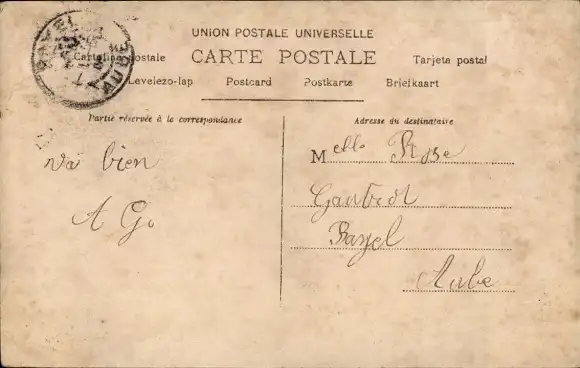 UNION POSTALE UNIVERSELLE
CARTE POSTALE
Cartolina postale
Tarjeta postal
Levelezo-lap Postcard Postkarte Briefkaart
BAYEL
AUBE
Partie réservée à la correspondance
Adresse du destinataire
va bien
A Go
Melle Rose
Gautrot
Bayel
Aube